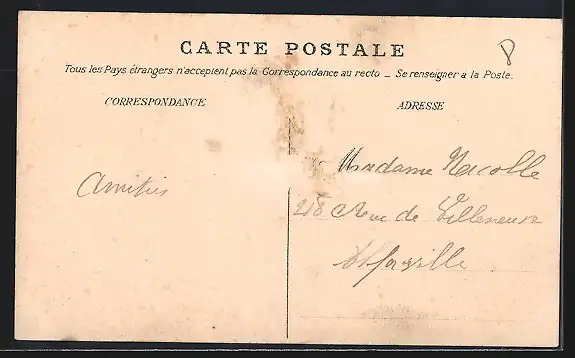 CARTE POSTALE
Tous les Pays étrangers n'acceptent pas la Correspondance au recto _ Se renseigner a la Poste.
CORRESPONDANCE
ADRESSE
Amitiés
Madame
218 Rue de Villeneuve
Alfortville